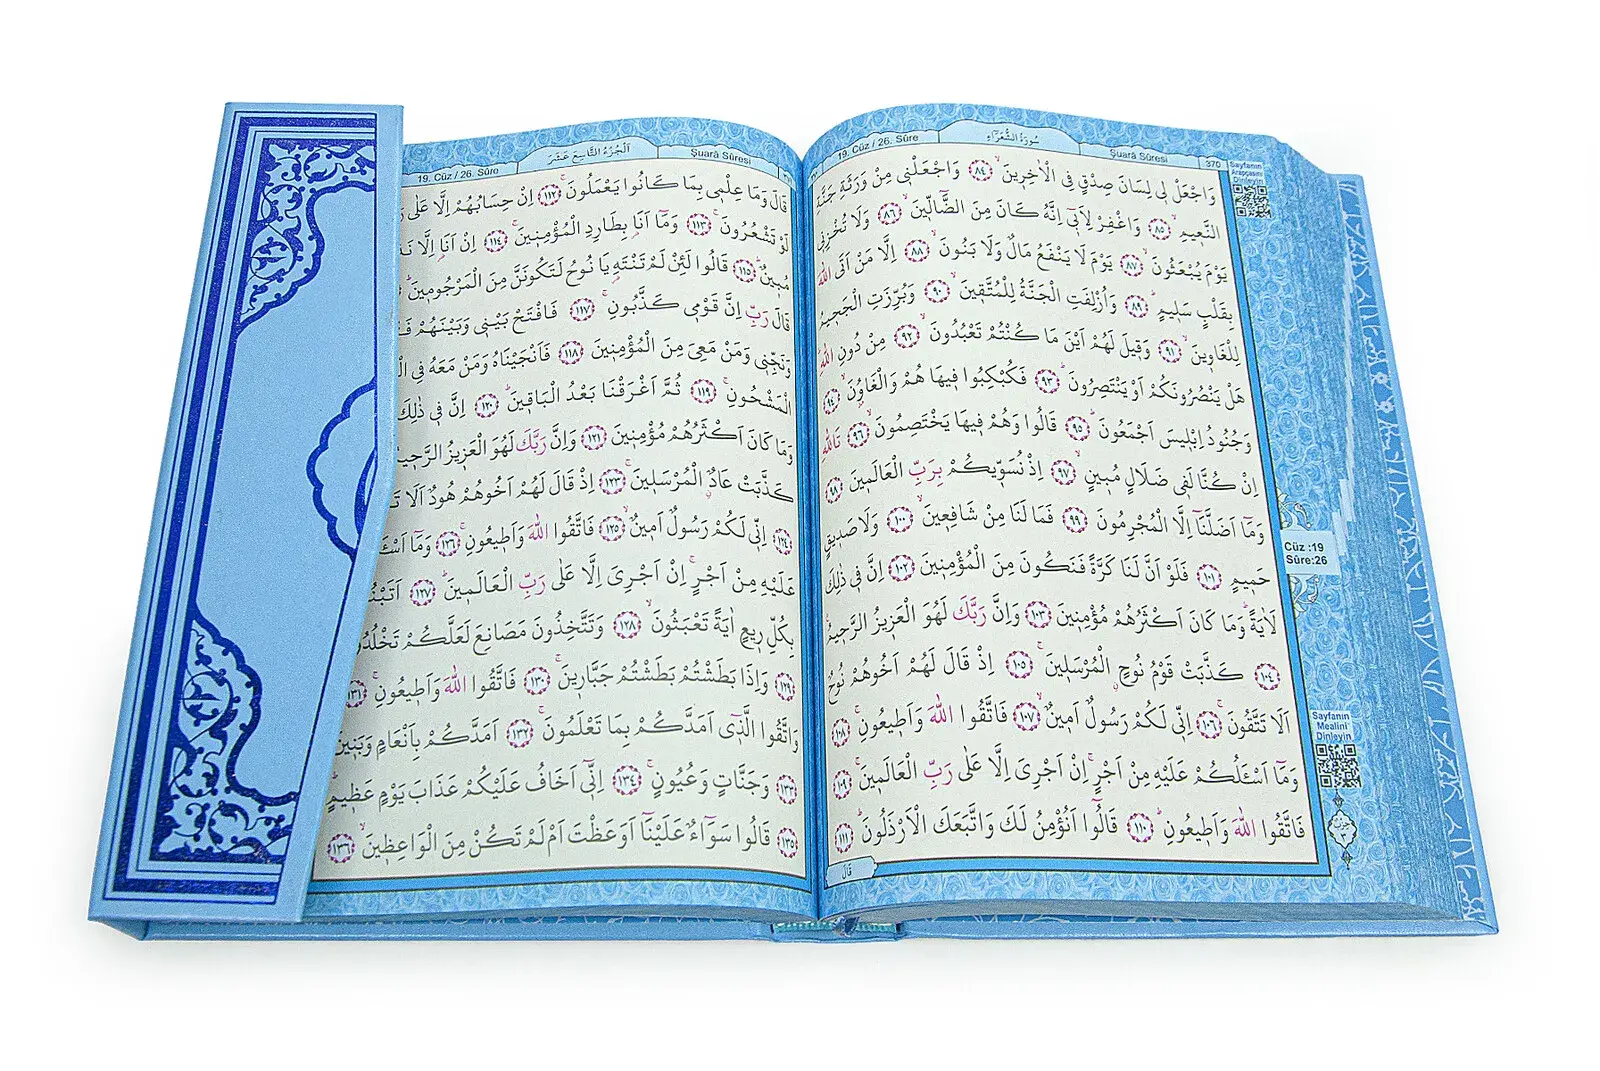 19. Cüz / 26. Sûre
سُورَةُ الشُّعَرَاءِ
Şuarâ Sûresi
370
وَاجْعَلْ لِى لِسَانَ صِدْقٍ فِى الْاٰخِرِينَ ﴿٨٤﴾ وَاجْعَلْنِى مِنْ وَرَثَةِ جَنَّةِ
النَّعِيمِ ﴿٨٥﴾ وَاغْفِرْ لِاَبِى اِنَّهُ كَانَ مِنَ الضَّالِّينَ ﴿٨٦﴾ وَلَا تُخْزِنِى
يَوْمَ يُبْعَثُونَ ﴿٨٧﴾ يَوْمَ لَا يَنْفَعُ مَالٌ وَلَا بَنُونَ ﴿٨٨﴾ اِلَّا مَنْ اَتَى اللّٰهَ
بِقَلْبٍ سَلِيمٍ ﴿٨٩﴾ وَاُزْلِفَتِ الْجَنَّةُ لِلْمُتَّقِينَ ﴿٩٠﴾ وَبُرِّزَتِ الْجَحِيمُ
لِلْغَاوِينَ ﴿٩١﴾ وَقِيلَ لَهُمْ اَيْنَ مَا كُنْتُمْ تَعْبُدُونَ ﴿٩٢﴾ مِنْ دُونِ اللّٰهِ
هَلْ يَنْصُرُونَكُمْ اَوْ يَنْتَصِرُونَ ﴿٩٣﴾ فَكُبْكِبُوا فِيهَا هُمْ وَالْغَاوُنَ ﴿٩٤﴾
وَجُنُودُ اِبْلِيسَ اَجْمَعُونَ ﴿٩٥﴾ قَالُوا وَهُمْ فِيهَا يَخْتَصِمُونَ ﴿٩٦﴾ تَاللّٰهِ
اِنْ كُنَّا لَفِى ضَلَالٍ مُبِينٍ ﴿٩٧﴾ اِذْ نُسَوِّيكُمْ بِرَبِّ الْعَالَمِينَ ﴿٩٨﴾
وَمَا اَضَلَّنَا اِلَّا الْمُجْرِمُونَ ﴿٩٩﴾ فَمَا لَنَا مِنْ شَافِعِينَ ﴿١٠٠﴾ وَلَا صَدِيقٍ
حَمِيمٍ ﴿١٠١﴾ فَلَوْ اَنَّ لَنَا كَرَّةً فَنَكُونَ مِنَ الْمُؤْمِنِينَ ﴿١٠٢﴾ اِنَّ فِى ذٰلِكَ
لَاٰيَةً وَمَا كَانَ اَكْثَرُهُمْ مُؤْمِنِينَ ﴿١٠٣﴾ وَاِنَّ رَبَّكَ لَهُوَ الْعَزِيزُ الرَّحِيمُ
﴿١٠٤﴾ كَذَّبَتْ قَوْمُ نُوحٍ الْمُرْسَلِينَ ﴿١٠٥﴾ اِذْ قَالَ لَهُمْ اَخُوهُمْ نُوحٌ
اَلَا تَتَّقُونَ ﴿١٠٦﴾ اِنِّى لَكُمْ رَسُولٌ اَمِينٌ ﴿١٠٧﴾ فَاتَّقُوا اللّٰهَ وَاَطِيعُونِ ﴿١٠٨﴾
وَمَا اَسْئَلُكُمْ عَلَيْهِ مِنْ اَجْرٍ اِنْ اَجْرِىَ اِلَّا عَلٰى رَبِّ الْعَالَمِينَ ﴿١٠٩﴾
فَاتَّقُوا اللّٰهَ وَاَطِيعُونِ ﴿١١٠﴾ قَالُوا اَنُؤْمِنُ لَكَ وَاتَّبَعَكَ الْاَرْذَلُونَ ﴿١١١﴾
قَالَ
Sayfanın
Arapçasını
Dinleyin
Cüz :19
Sûre:26
Sayfanın
Mealini
Dinleyin
19. Cüz / 26. Sûre
اَلْجُزْءُ التَّاسِعَ عَشَرَ
Şuarâ Sûresi
قَالَ وَمَا عِلْمِى بِمَا كَانُوا يَعْمَلُونَ ﴿١١٢﴾ اِنْ حِسَابُهُمْ اِلَّا عَلٰى
لَوْ تَشْعُرُونَ ﴿١١٣﴾ وَمَا اَنَا بِطَارِدِ الْمُؤْمِنِينَ ﴿١١٤﴾ اِنْ اَنَا اِلَّا
مُبِينٌ ﴿١١٥﴾ قَالُوا لَئِنْ لَمْ تَنْتَهِ يَا نُوحُ لَتَكُونَنَّ مِنَ الْمَرْجُومِينَ
قَالَ رَبِّ اِنَّ قَوْمِى كَذَّبُونِ ﴿١١٧﴾ فَافْتَحْ بَيْنِى وَبَيْنَهُمْ
وَنَجِّنِى وَمَنْ مَعِىَ مِنَ الْمُؤْمِنِينَ ﴿١١٨﴾ فَاَنْجَيْنَاهُ وَمَنْ مَعَهُ فِى
الْمَشْحُونِ ﴿١١٩﴾ ثُمَّ اَغْرَقْنَا بَعْدُ الْبَاقِينَ ﴿١٢٠﴾ اِنَّ فِى ذٰلِكَ
وَمَا كَانَ اَكْثَرُهُمْ مُؤْمِنِينَ ﴿١٢١﴾ وَاِنَّ رَبَّكَ لَهُوَ الْعَزِيزُ الرَّحِيمُ
كَذَّبَتْ عَادٌ الْمُرْسَلِينَ ﴿١٢٣﴾ اِذْ قَالَ لَهُمْ اَخُوهُمْ هُودٌ اَلَا
﴿١٢٤﴾ اِنِّى لَكُمْ رَسُولٌ اَمِينٌ ﴿١٢٥﴾ فَاتَّقُوا اللّٰهَ وَاَطِيعُونِ ﴿١٢٦﴾ وَمَا
عَلَيْهِ مِنْ اَجْرٍ اِنْ اَجْرِىَ اِلَّا عَلٰى رَبِّ الْعَالَمِينَ ﴿١٢٧﴾ اَتَبْنُونَ
بِكُلِّ رِيعٍ اٰيَةً تَعْبَثُونَ ﴿١٢٨﴾ وَتَتَّخِذُونَ مَصَانِعَ لَعَلَّكُمْ تَخْلُدُونَ
﴿١٢٩﴾ وَاِذَا بَطَشْتُمْ بَطَشْتُمْ جَبَّارِينَ ﴿١٣٠﴾ فَاتَّقُوا اللّٰهَ وَاَطِيعُونِ ﴿١٣١﴾
وَاتَّقُوا الَّذِى اَمَدَّكُمْ بِمَا تَعْلَمُونَ ﴿١٣٢﴾ اَمَدَّكُمْ بِاَنْعَامٍ وَبَنِينَ
﴿١٣٣﴾ وَجَنَّاتٍ وَعُيُونٍ ﴿١٣٤﴾ اِنِّى اَخَافُ عَلَيْكُمْ عَذَابَ يَوْمٍ عَظِيمٍ
﴿١٣٥﴾ قَالُوا سَوَاءٌ عَلَيْنَا اَوَعَظْتَ اَمْ لَمْ تَكُنْ مِنَ الْوَاعِظِينَ ﴿١٣٦﴾